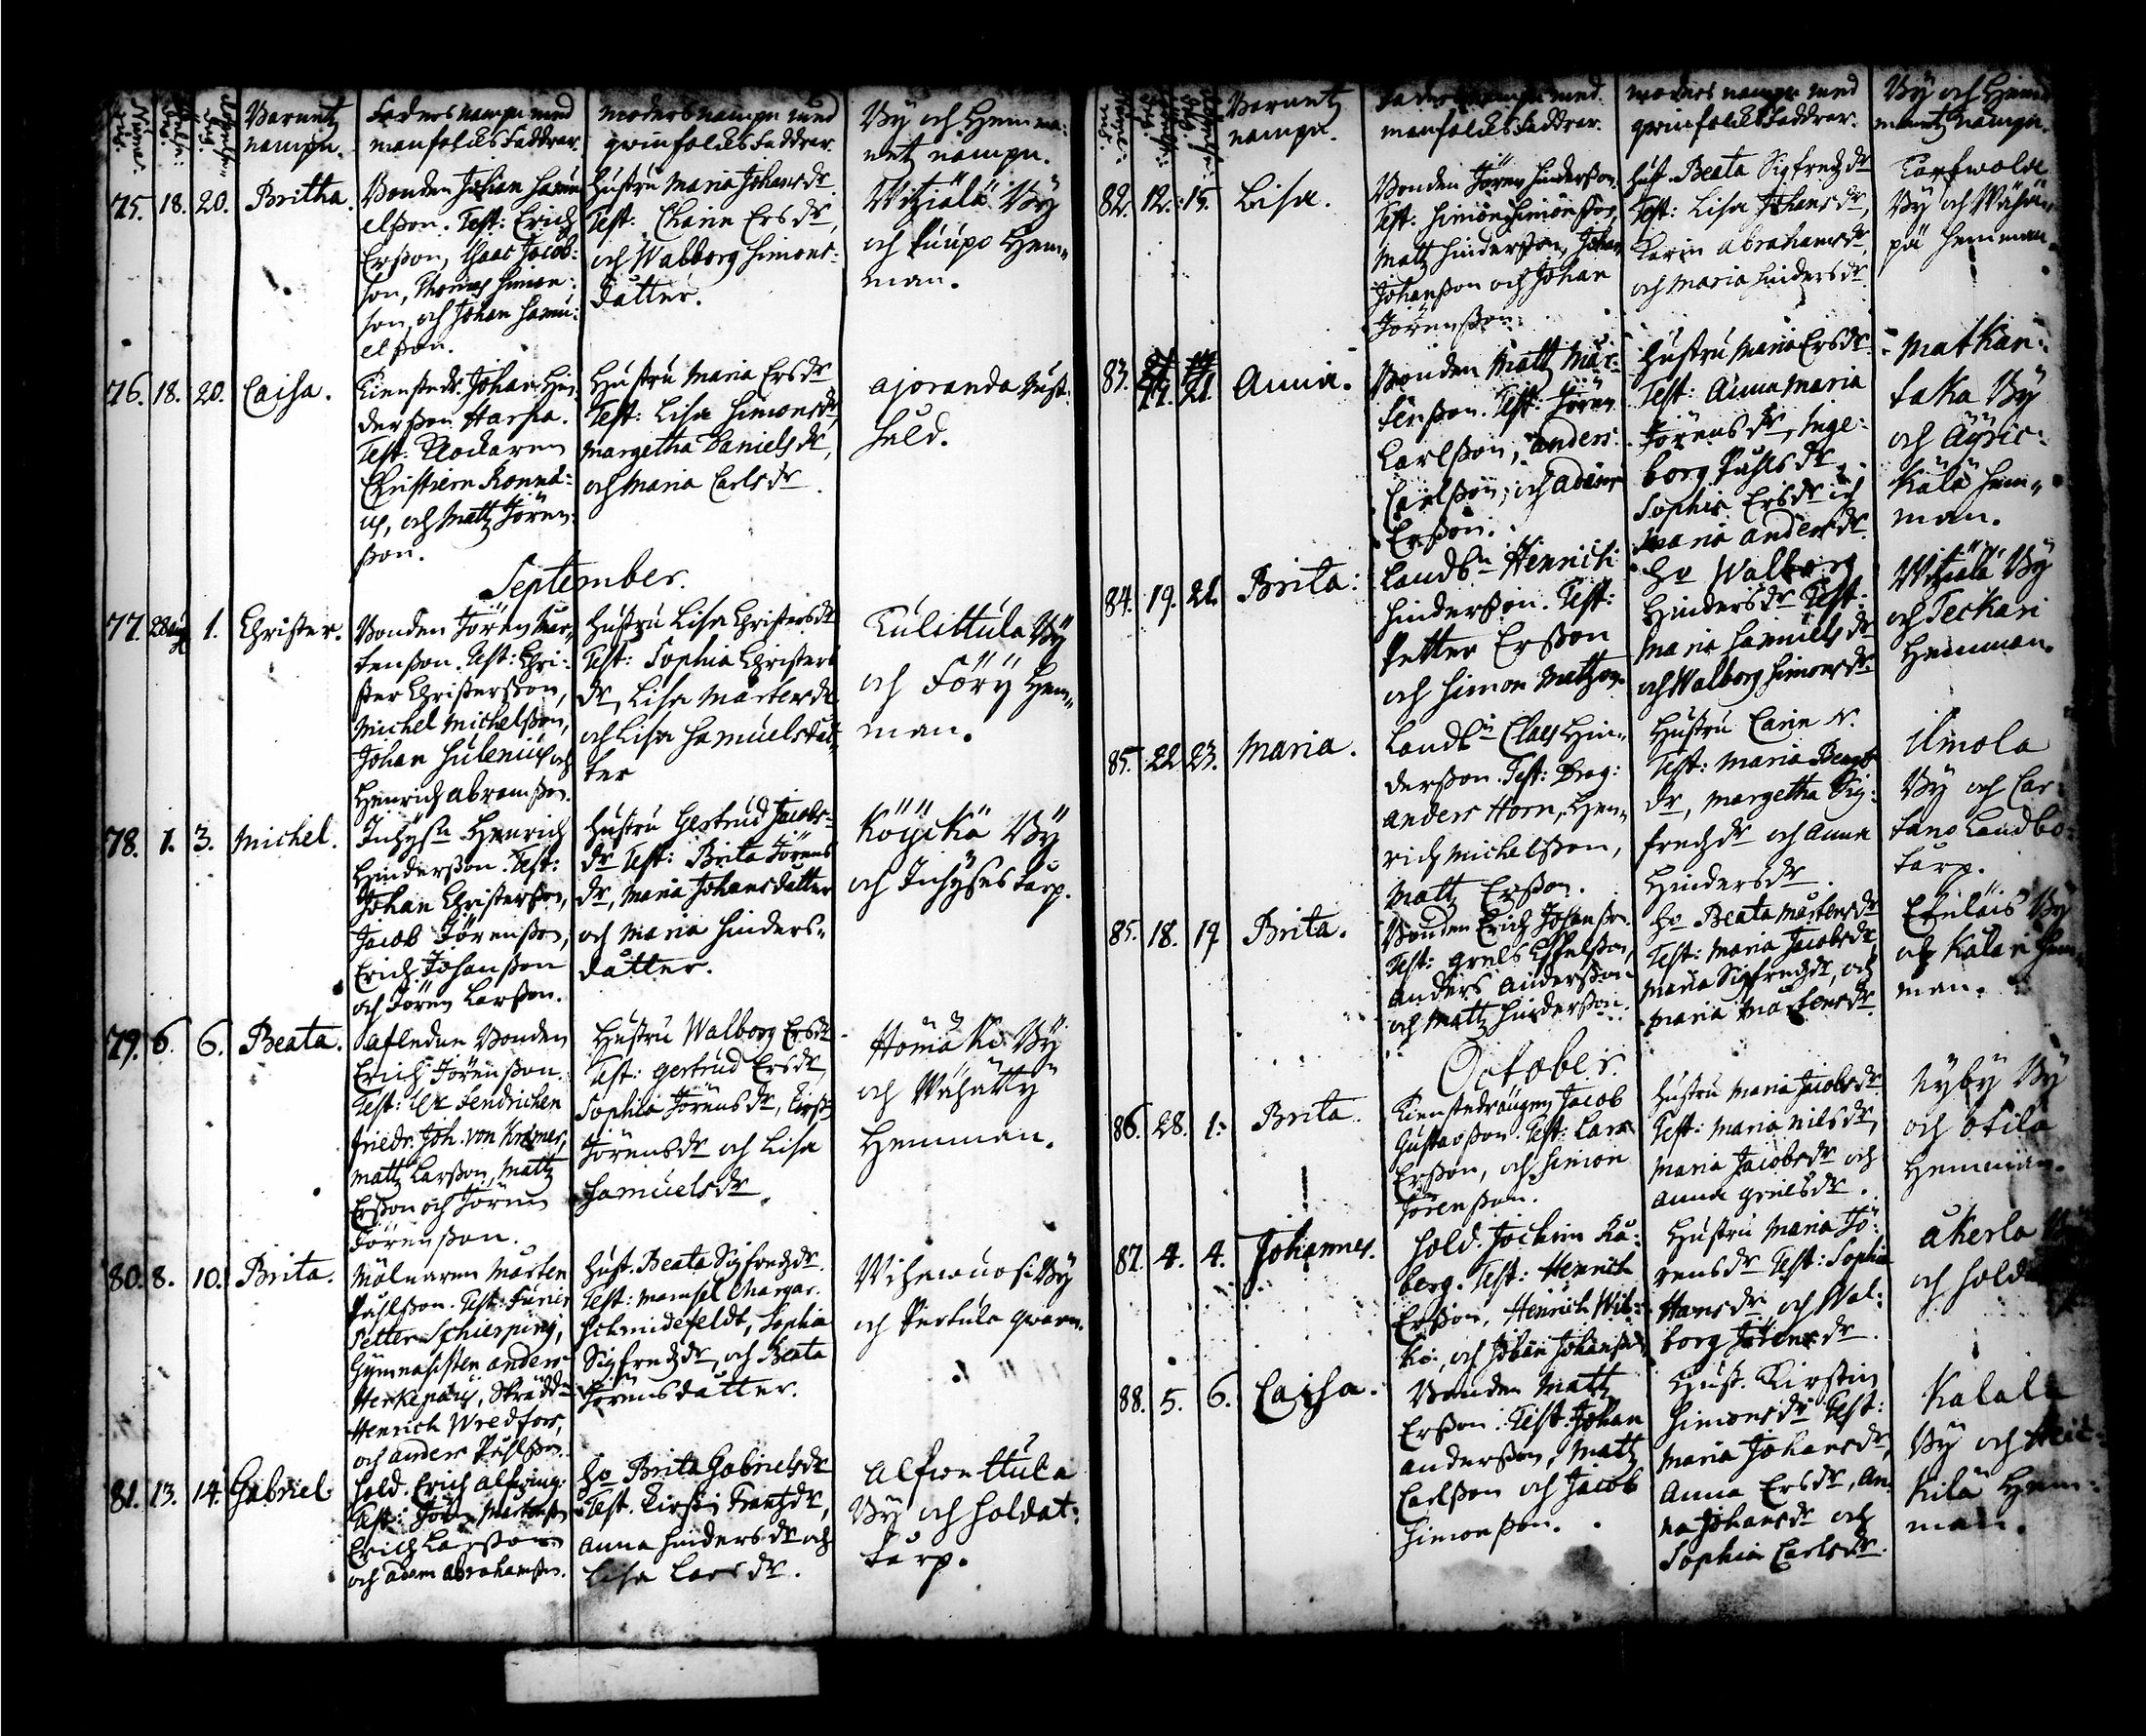 Barnetz nampn.
Faders nampn med manfolcks Faddrar.
moders nampn med qwinfolcks Faddrar.
By och Hemma: netz nampn.
75. 18. 20. Britha.
Bonden Johan Samu
elsson. Test: Erich
Ersson, Isaac Jacob:
son, Thomas Simon:
son, och Johan Samu:
elsson.
Hustru Maria Johansdr
Test: Carin Ersdr,
och Walborg Simons:
dåtter.
Witziälä By
och Puupo Hem„
man.
76. 18. 20. Caisa.
Tienstedr. Johan Hin:
dersson Harpa.
Test: Klockaren
Christiern Ronnä:
us, och Matz Jören:
sson.
Hustru Maria Ersdr
Test: Lisa Simonsdr,
Margetha Danielsdr,
och Maria Carlsdr.
ajoranda Rust:
håld.
September.
77. 28 aug 1. Christer.
Bonden Jören Mår„
tensson. Test: Chri:
ster Christersson,
Michel Michelsson,
Johan Hulenius och
Henrich abramsson.
Hustru Lisa Christersdr
Test: Sophia Christers
dr, Lisa Mårtensdr
och Lisa Samuelsdåt„
ter
Kulittula By
och Föry Hem„
man.
78. 1. 3. Michel.
Inhysn Henrich
Hindersson. Test:
Johan Christersson,
Jacob Jörensson,
Erich Johansson
och Jören Larsson.
Hustru Gertrud Jacobs:
dr Test: Brita Jörens
dr, Maria Johansdåtter
och Maria Hinders„
dåtter.
Köyickä By
och Inhyses torp.
79. 6. 6. Beata.
Afledne Bonden
Erich Jörensson.
Test: Hr Fendrichen
Friedr. Joh. von Kræmer,
Matz Larsson, Matz
Ersson och Jören
Jörensson.
Hustru Walborg Ersdr
Test: Gertrud Ersdr,
Sophia Jörensdr, Kirst:
Jörensdr och Lisa
Samuelsdr.
Hömäki By
och Wähätty
Hemman.
80. 8. 10. Brita.
Mölnaren Mårten
Påhlsson. Test: Furier
Petter Schierping,
Gymnasisten anders
Herkepæus, Skrädd:
Henrich Wredfors,
och anders Påhlsson.
Hust. Beata Sigfredzdr.
Test: Mamsel Margar.
Schmidefeldt, Sophia
Sigfredzdr, och Beata
Jörensdåtter.
Wihawuosi By
och Pertula qwarn.
81. 13. 14. Gabriel.
Sold. Erich alfving.
Test: Jören Mårtensson
Erich Larsson
och adam abrahamsson.
Ho Brita Gabrielsdr
Test. Kirstin Frantzdr,
Anna Hindersdr och
Lisa Larsdr.
Alfwettula
By och Soldat:
torp.
Barnetz nampn.
Faders nampn med manfolcks Faddrar.
moders nampn med qwinfolcks Faddrar.
By och Hemma: netz nampn.
82. 12. 15. Lisa.
Bonden Jören Hindersson.
Test: Simon Simonsson,
Matz Hindersson, Johan
Johansson och Johan
Jörensson.
Hust. Beata Sigfredzdr
Test: Lisa Johansdr,
Karin Abrahamsdr
och Maria Hindersdr.
By och Wähä„
pä Hemman.
83. 21. Anna.
Bonden Matz Mår:
tensson. Test: Jören
Carlsson, Anders
Carlsson, och Adam
Ersson.
Hustru Maria Ersdr.
Test: Anna Maria
Jörensdr, Inge:
borg Påhlsdr,
Sophia Ersdr och
Maria Andersdr.
Matkan:
taka By
och Äyric:
kälä Hem„
man.
84. 19. 21. Brita:
Landbn Henrich
Hindersson. Test:
Petter Ersson
och Simon Matzon
Ho Walborg
Hindersdr Test:
Maria Samuelsdr
och Walborg Simonsdr
Witziälä By
och Teckari
Hemman.
85. 22 23. Maria.
Landbn Claes Hin„
dersson. Test: Drag:
anders Horn, Hen„
rich Michelsson,
Matz Ersson.
Hustru Carin N.
Test: Maria Bengts
dr, Margetha Sig:
fredzdr och Anna
Hindersdr.
Ilmola
By och Car:
tano Landbo:
torp.
85. 18. 19. Brita.
Bonden Erich Johansson.
Test: Grels Eskelsson,
Anders Andersson
och Matz Hindersson.
Ho Beata Mårtensdr
Test: Maria Jacobsdr,
Maria Sigfredzdr, och
Maria Mårtensdr.
Etuläis By
och Kalari Hem„
man.
October.
86. 28. 1. Brita.
Tienstedrängen Jacob
Gustavsson. Test: Lars
Ersson, och Simon
Jörensson.
Hustru Maria Jacobsdr.
Test: Maria Nilsdr,
Maria Jacobsdr och
Anna Grelsdr.
Nyby By
och Otila
Hemman.
87. 4. 4. Johannes.
Sold. Jochim Kå:
berg. Test: Henrich
Ersson, Henrich Wil:
ki, och Johan Johansson
Hustru Maria Jö:
rensdr Test: Sophia
Hansdr och Wal:
borg Jörensdr.
Åkerla
och
88. 5. 6. Caisa.
Bonden Matz
Ersson. Test. Johan
Andersson, Matz
Carlsson och Jacob
Simonsson.
Hust. Kirstin
Simonsdr Test:
Maria Johansdr,
Anna Ersdr, An
na Johansdr och
Sophia Carlsdr.
Kalala
By och Heic:
kilä Hem:
man.